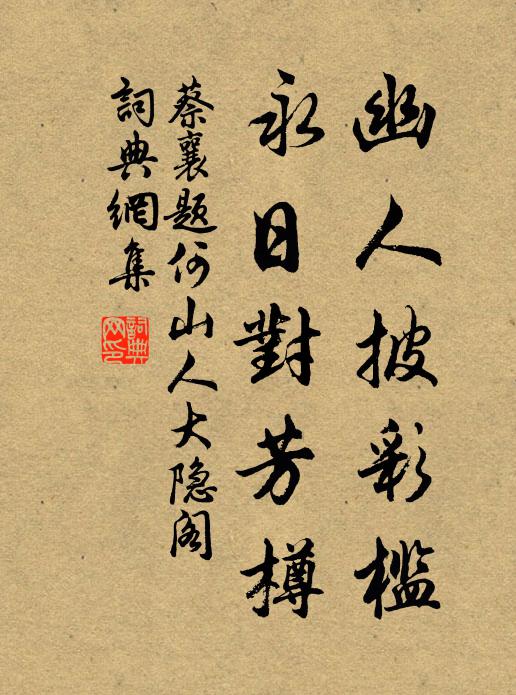 幽人披彩槛
永日對芳樽
蔡襄题何山人大隐阁
詞典網集
詞典网印